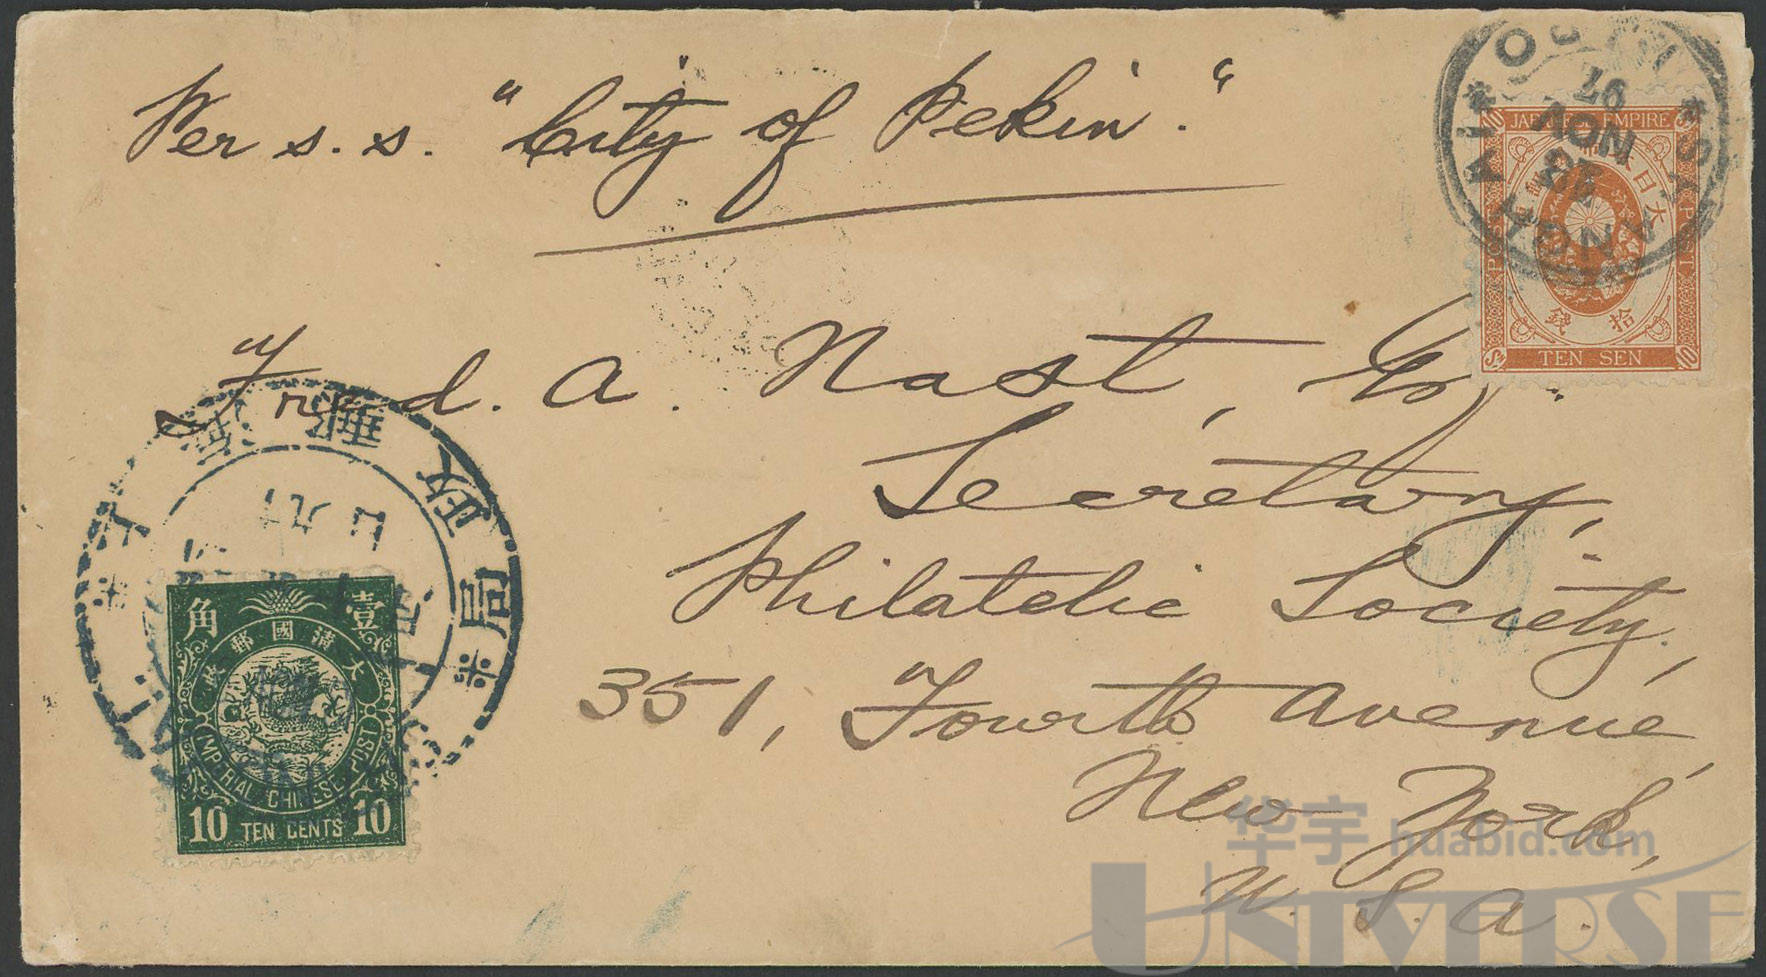 Per s.s. "City of Pekin"
Fred. A. Nast, Esq.
Secretary,
Philatelic Society,
351, Fourth Avenue,
New York,
U. S. A.
JAPANESE EMPIRE
大日
拾錢
TEN SEN
10
SHANGHAI
NOV
97
政局
角 壹
大清國郵政
IMPERIAL CHINESE POST
10 TEN CENTS 10
华宇 huabid.com
UNIVERSE